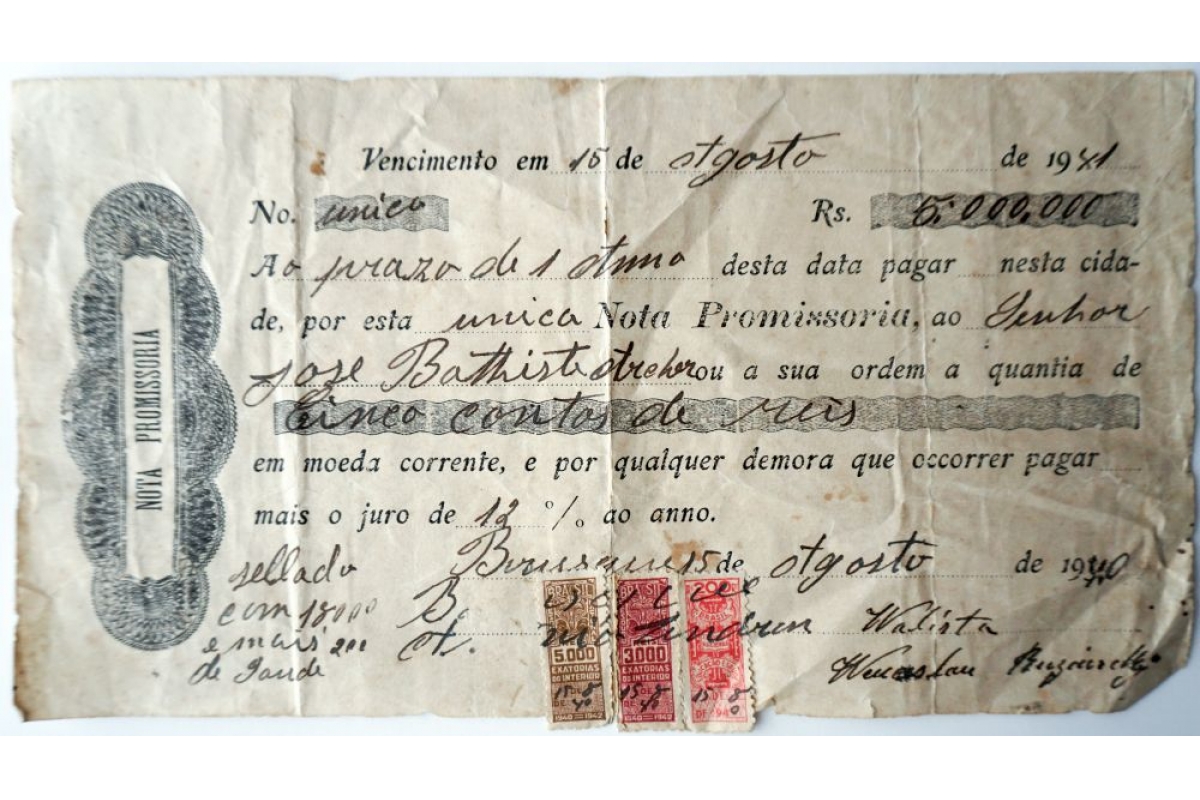 Vencimento em 15 de Agosto de 1941
No. unico Rs. 5:000,000
Ao prazo de 1 Anno desta data pagar nesta cida-
de, por esta unica Nota Promissoria, ao Senhor
José Bathiste Archer ou a sua ordem a quantia de
Cinco contos de reis
em moeda corrente, e por qualquer demora que occorrer pagar
mais o juro de 12 % ao anno.
Brusque 15 de Agosto de 1940
NOTA PROMISSORIA
sellado
com
e mais 200
de Saude
BRASIL
5.000
EXATORIAS
DO INTERIOR
15-8
DE 40
1940-1942
BRASIL
3000
EXATORIAS
DO INTERIOR
15-8
DE 40
1940-1942
200
BRASIL
15 8
DE 1940
Walista